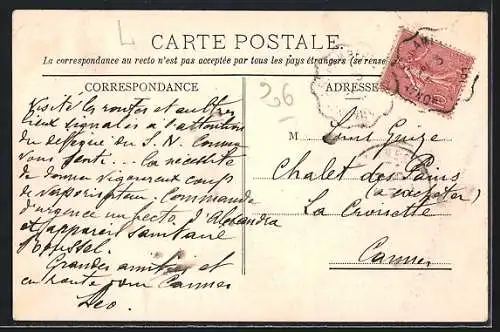 L
CARTE POSTALE.
La correspondance au recto n'est pas acceptée par tous les pays étrangers (se rense
CORRESPONDANCE
ADRESSE
26
Visité les routes et autres
lieux signalés à l'attention
du délégué du S. N.
vous sente... La nécessité
de donner vigoureux coup
de vaporisateur. Commande
d'urgence d'Alexandra
et appareil sanitaire
Roussel.
Grandes amitiés et
en route pour Cannes
Leo.
M Louis
Chalet des Pins
(à exploiter)
La Croisette
Cannes